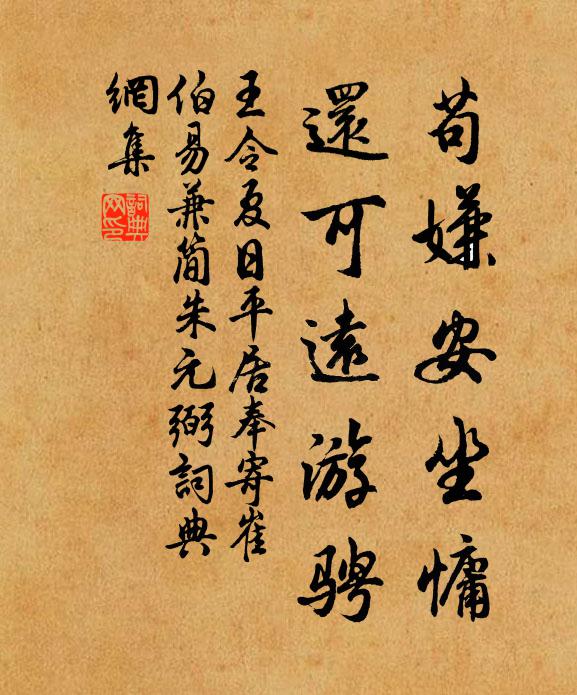 苟嫌安坐慵
還可遠游骋
王令夏日平居奉寄崔
伯易兼简朱元弼詞典
網集
詞典网印